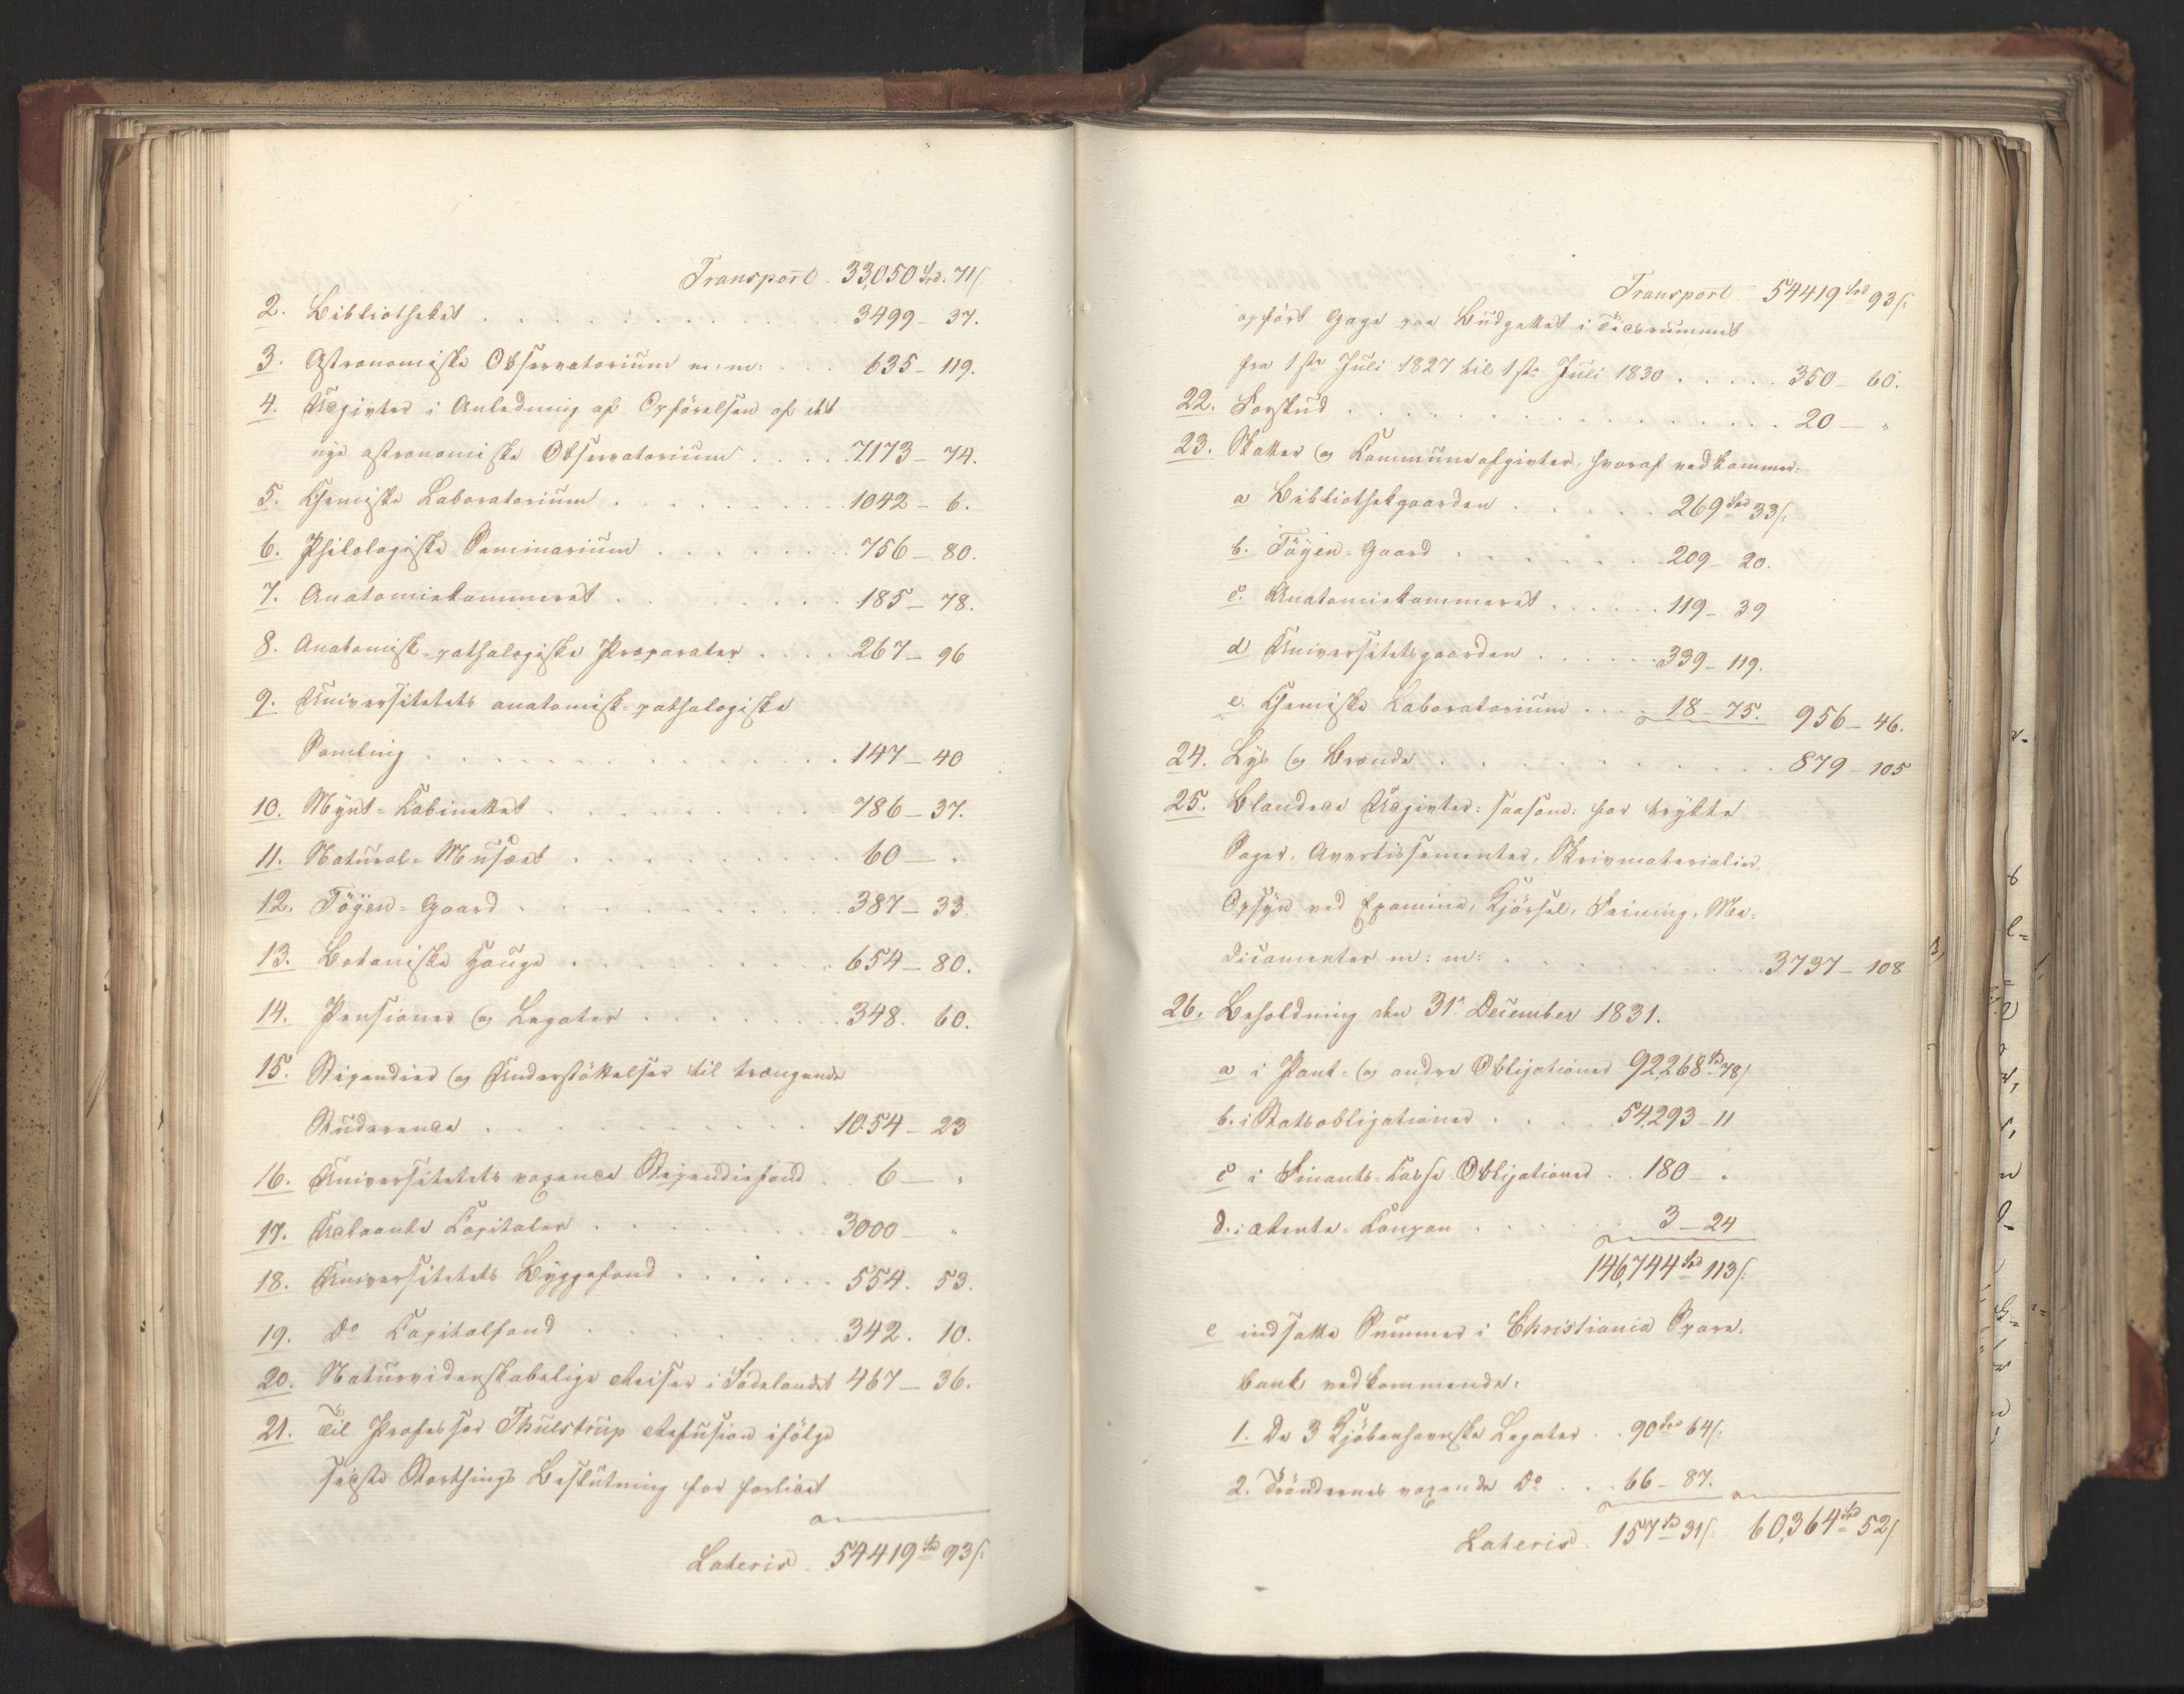 Transport 33,050 Spd: 71 s.
2. Bibliotheket 3499 - 37.
3. Astronomiske Observatorium m: m: 635 - 119.
4. Udgivter i Anledning af Opförelsen af det
nye astronomiske Observatorium 7173 - 74.
5. Chemiske Laboratorium 1042 - 6.
6. Philologiske Seminarium 756 - 80.
7. Anatomiekammeret 185 - 78.
8. Anatomisk-pathologiske Præparater 267 - 96
9. Universitetets anatomisk-pathologiske
Samling 147 - 40
10. Mynt-Kabinettet 786 - 37.
11. Natural-Musæet 60 - "
12. Töyen-Gaard 387 - 33.
13. Botaniske Hauge 654 - 80.
14. Pensioner og Legater 348. 60.
15. Stipendier og Understöttelser til trængende
Studerende 1054 - 23
16. Universitetets voxende Stipendiefond 6 - "
17. Udlaante Capitaler 3000 - "
18. Universitetets Byggefond 554. 53.
19. Do Capitalfond 342. 10.
20. Naturvidenskabelige Reiser i Födelandet 467 - 36.
21. Til Professor Thulstrup Refusion ifölge
sidste Storthings Beslutning for forlidet
Lateris 54419 Spd 93 s:
Transport 54419 Spd 93 s:
opfört Gage paa Budgettet i Tidsrummet
fra 1ste Juli 1827 til 1ste Juli 1830 350 - 60.
22. Forskud 20 - "
23. Skatter og Communeafgivter, hvoraf vedkommer:
a Bibliothekgaarden 269 Spd 33 s:
b. Töyen-Gaard 209 - 20.
c. Anatomiekammeret 119 - 39
d Universitetsgaarden 339 - 119.
e. Chemiske Laboratorium 18 - 75. 956 - 46.
24. Lys og Brænde 879 - 105
25. Blandede Udgivter: saasom: for trykte
Sager, Avertissementer, Skrivmaterialier,
Opsyn ved Examina, Kjörsel, Feining, Me-
dicamenter m: m: 3737 - 108
26. Beholdning den 31 December 1831.
a i Pant- og andre Obligationer 92,268 Spd 78 s
b. i Statsobligationer 54,293 - 11
c i Finants-Casse Obligationer 180 - "
d. i Rente-Coupon 3 - 24
146,744 Spd 113 s:
e indsatte Summer i Christiania Spare-
bank vedkommende:
1. De 3 Kjöbenhavnske Legater 90 Spd 64 s:
2. Tröndernes voxende Do 66 - 87.
Lateris 157 Spd 31 s: 60,364 Spd 52 s